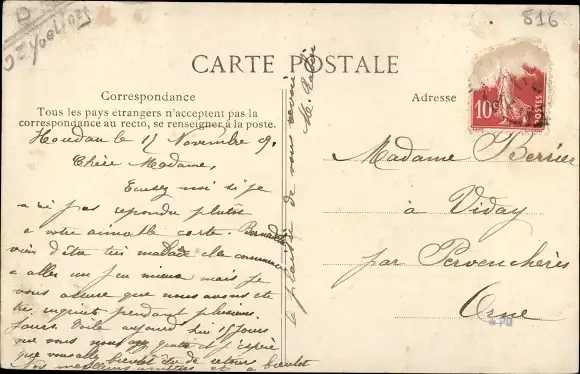 816
CARTE POSTALE
Correspondance
Adresse
Tous les pays etrangers n'acceptent pas la
correspondance au recto, se renseigner à la poste.
10c
POSTES
Houdan le 15 Novembre 9.
Chère Madame,
Excusez moi si je
n'ai pas repondu plutôt
a votre aimable carte. Bernard
vien d'être très malade cela commence
a aller un peu mieux mais je
vous assure que nous avons été
très inquiet pendant plusieurs
jours. Voila aujourd'hui 15 jours
que vous nous avez quitté et j'espère
que vous allez bientôt être de retour
Nos meilleurs amitiés et a bientôt
le plaisir de vous revoir
M.
Madame Berrier
à Viday
par Pervenchères
Orne